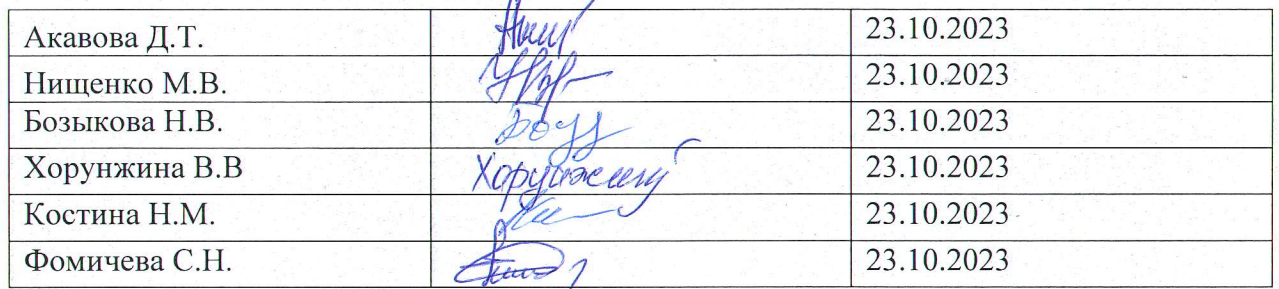 Акавова Д.Т. 23.10.2023
Нищенко М.В. 23.10.2023
Бозыкова Н.В. 23.10.2023
Хорунжина В.В 23.10.2023
Костина Н.М. 23.10.2023
Фомичева С.Н. 23.10.2023